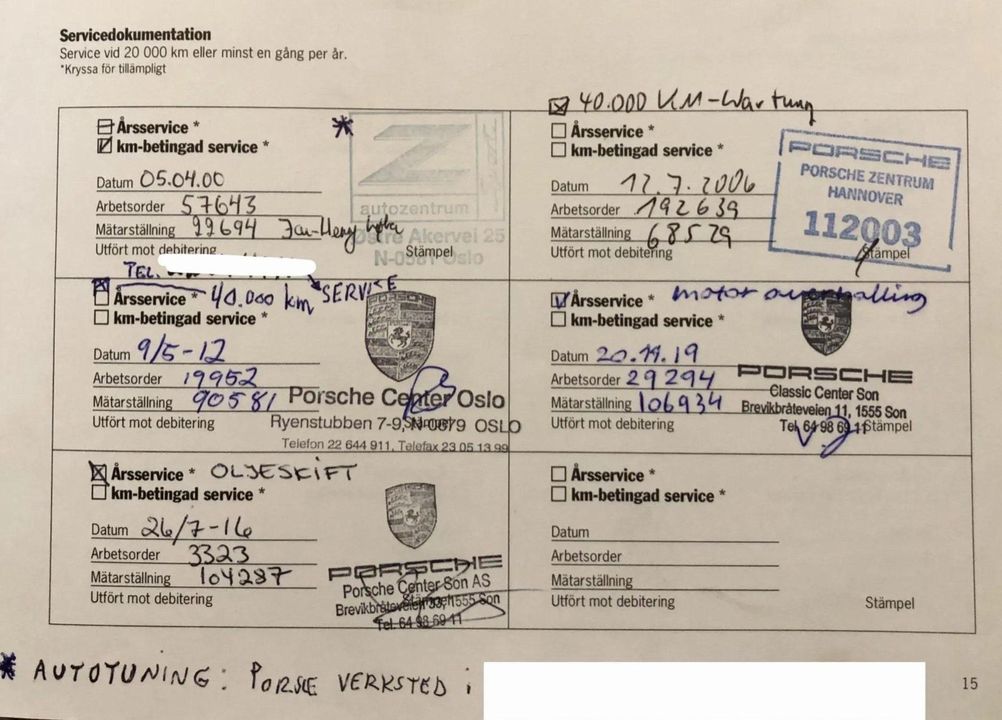 Servicedokumentation
Service vid 20 000 km eller minst en gång per år.
*Kryssa för tillämpligt
Årsservice *
km-betingad service *
Datum 05.04.00
Arbetsorder 57643
Mätarställning 99694
Utfört mot debitering
Stämpel
*
autozentrum
Østre Akervei 25
N-0581 Oslo
40.000 KM-Wartung
Årsservice *
km-betingad service *
Datum 12.7.2006
Arbetsorder 192639
Mätarställning 68529
Utfört mot debitering
Stämpel
PORSCHE
PORSCHE ZENTRUM
HANNOVER
112003
TEL.
SERVICE
Årsservice * 40.000 km
km-betingad service *
Datum 9/5-12
Arbetsorder 19952
Mätarställning 90581
Utfört mot debitering
Stämpel
Porsche Center Oslo
Ryenstubben 7-9, N-0679 OSLO
Telefon 22 644 911, Telefax 23 05 13 99
Årsservice * motor overhalling
km-betingad service *
Datum 20.11.19
Arbetsorder 29294
Mätarställning 106934
Utfört mot debitering
Stämpel
PORSCHE
Classic Center Son
Brevikbråteveien 11, 1555 Son
Tel. 64 98 69 11
Årsservice * OLJESKIFT
km-betingad service *
Datum 26/7-16
Arbetsorder 3323
Mätarställning 104287
Utfört mot debitering
Stämpel
PORSCHE
Porsche Center Son AS
Brevikbråteveien 33, 1555 Son
Tel. 64 98 69 11
Årsservice *
km-betingad service *
Datum
Arbetsorder
Mätarställning
Utfört mot debitering
Stämpel
* AUTOTUNING: PORSCHE VERKSTED i
15